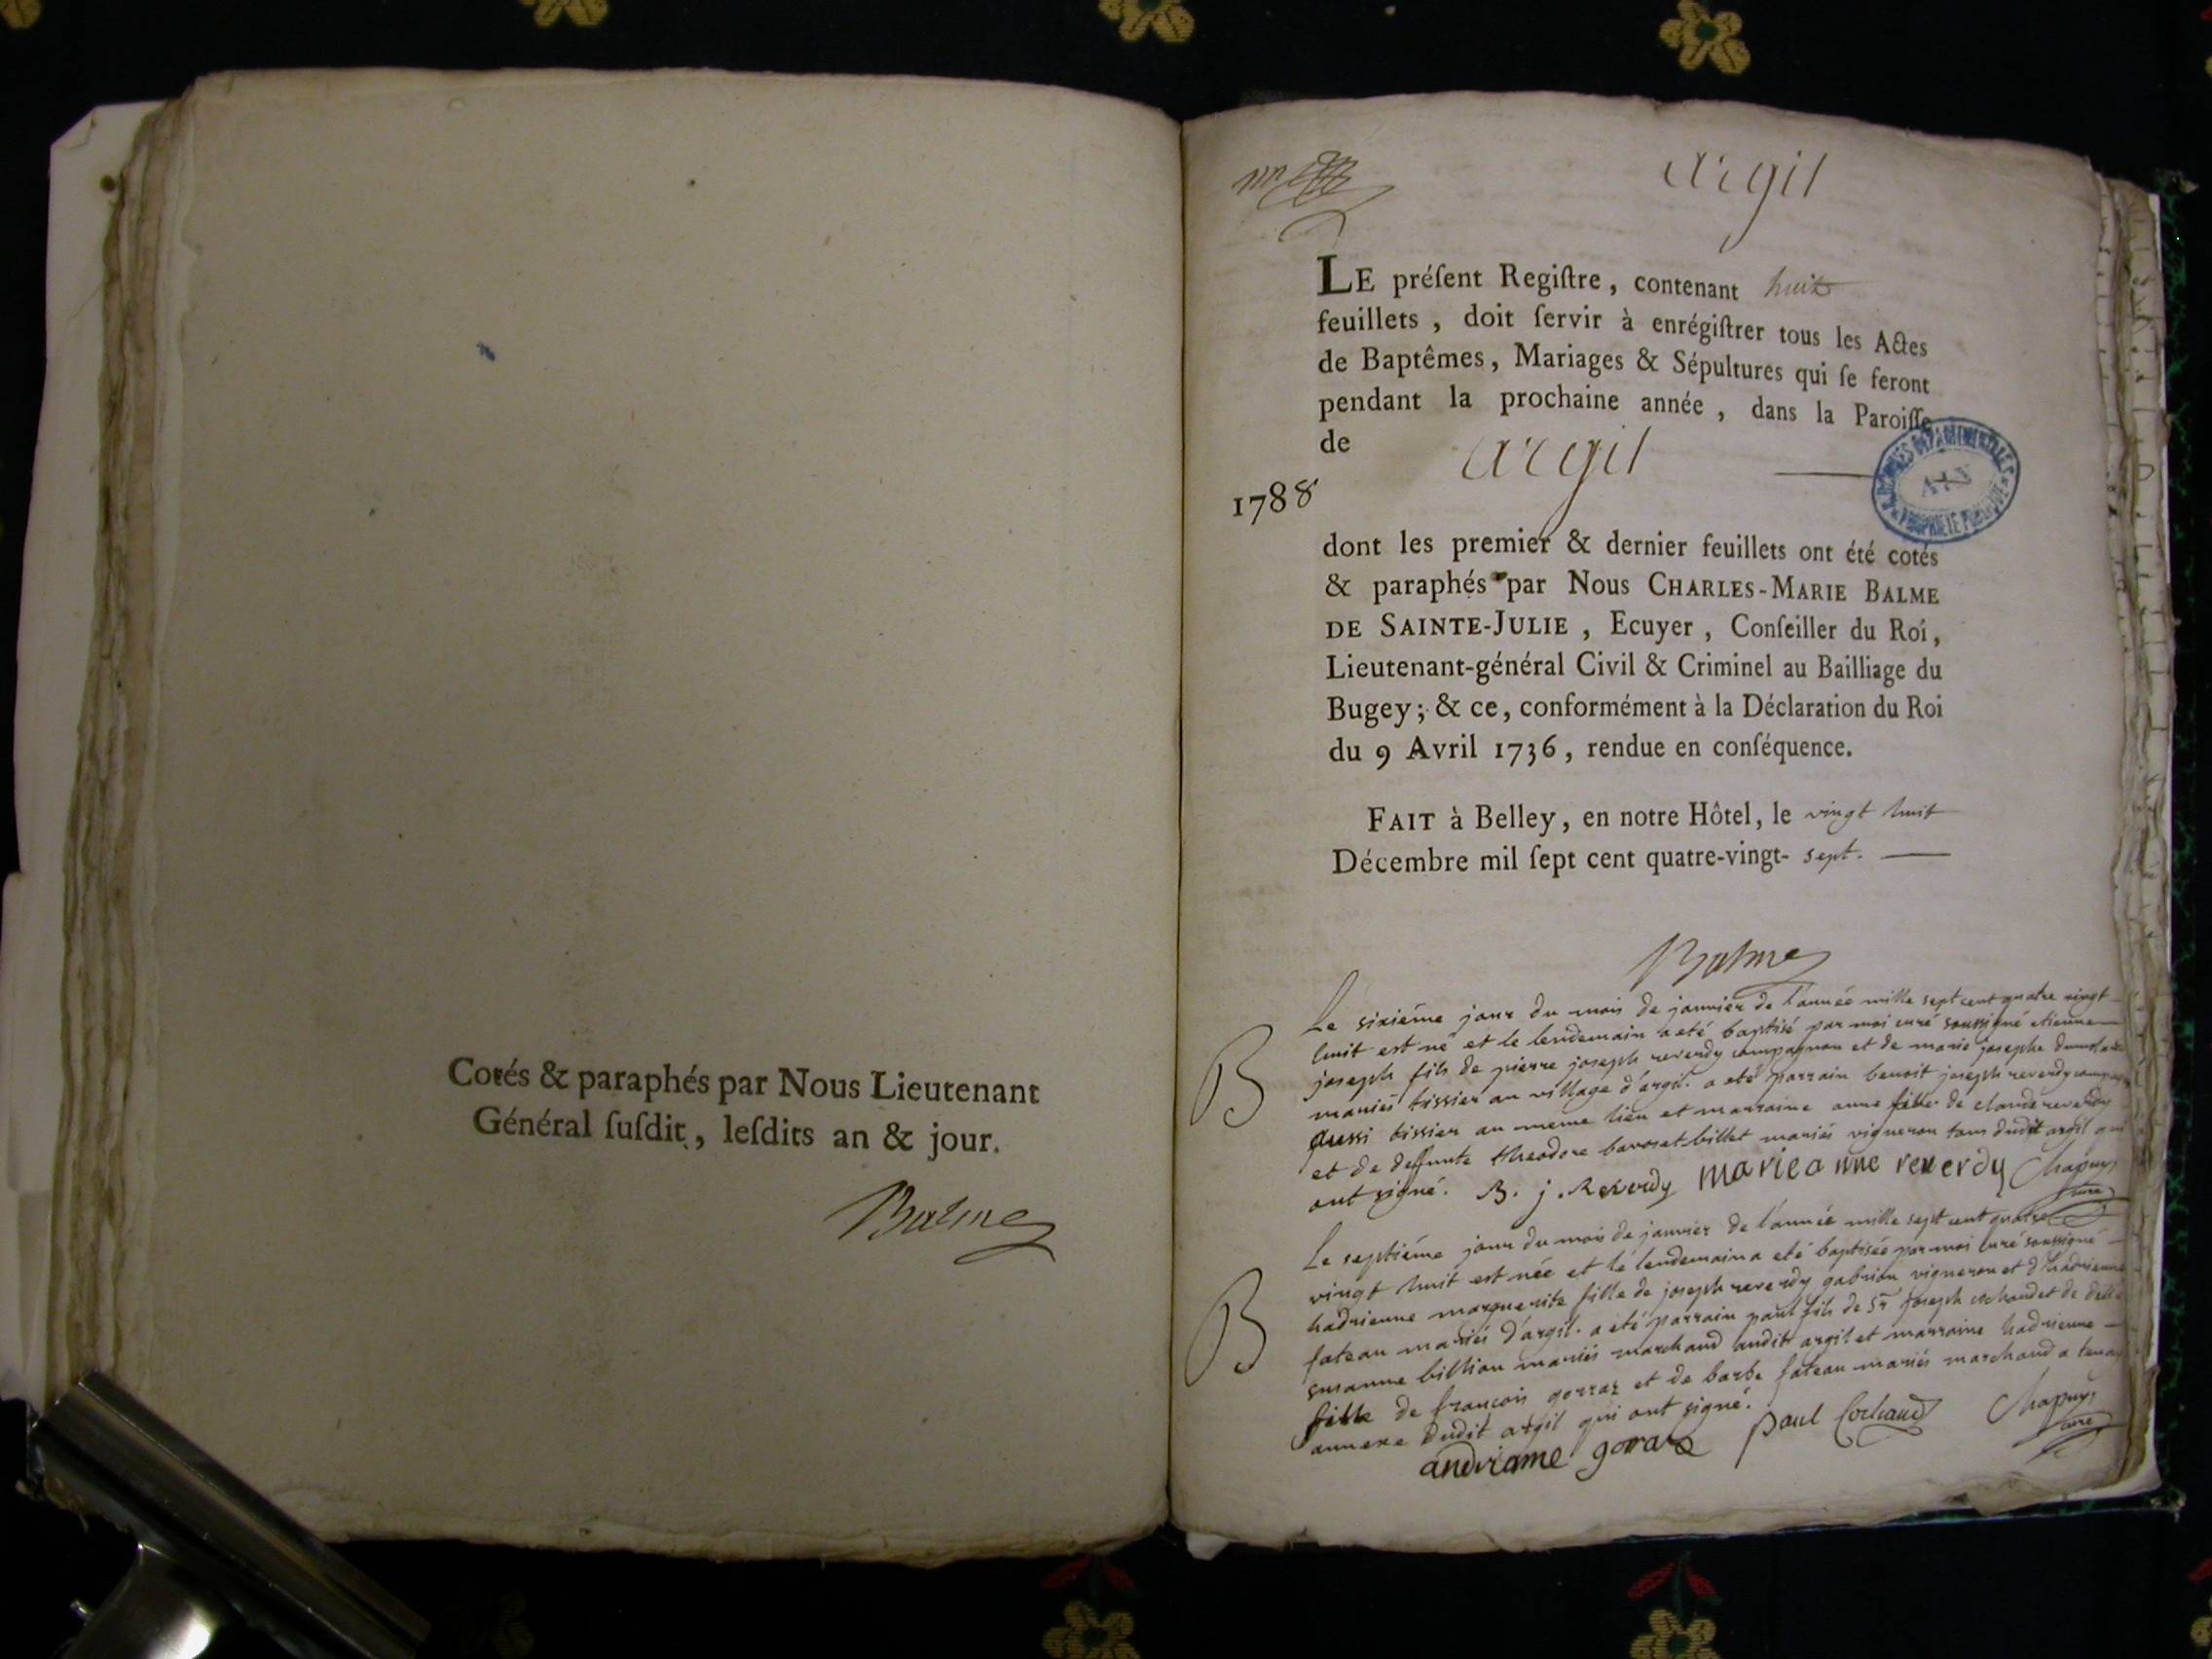 Cotés & paraphés par Nous Lieutenant
Général ſuſdit, leſdits an & jour.
Balme
argil
LE préſent Regiſtre, contenant huit
feuillets, doit ſervir à enrégiſtrer tous les Actes
de Baptêmes, Mariages & Sépultures qui ſe feront
pendant la prochaine année, dans la Paroiſſe
de argil
1788
AIN
PROPRIETE PUBLIQUE
dont les premier & dernier feuillets ont été cotés
& paraphés par Nous CHARLES-MARIE BALME
DE SAINTE-JULIE, Ecuyer, Conſeiller du Roi,
Lieutenant-général Civil & Criminel au Bailliage du
Bugey; & ce, conformément à la Déclaration du Roi
du 9 Avril 1736, rendue en conſéquence.
FAIT à Belley, en notre Hôtel, le vingt huit
Décembre mil ſept cent quatre-vingt- sept.
Balme
B
Le sixiéme jour du mois de janvier de l'année mille sept cent quatre vingt
huit est né et le lendemain a eté baptisé par moi curé soussigné etienne
joseph fils de pierre joseph reverdy compagnon et de marie josephe
mariés tissier au village d'argil. a eté parrain benoit joseph reverdy
aussi tissier au meme lieu et marraine anne fille de claude reverdy
et de deffunte theodore billet mariés vigneron tous dudit argil qui
ont signé. B. j. Reverdy marie anne reverdy Chapuy
curé
B
Le septiéme jour du mois de janvier de l'année mille sept cent quatre
vingt huit est née et le lendemain a eté baptisée par moi curé soussigné
hadrienne marguerite fille de joseph reverdy gabrion vigneron et d'hadrienne
fateau mariés d'argil. a eté parrain paul fils de sr joseph cochaud et de
susanne billion mariés marchand audit argil et marraine hadrienne
fille de francois gorraz et de barbe fateau mariés marchand a tenay
annexe dudit argil qui ont signé.
andrianne goraz paul Cochaud Chapuy
curé